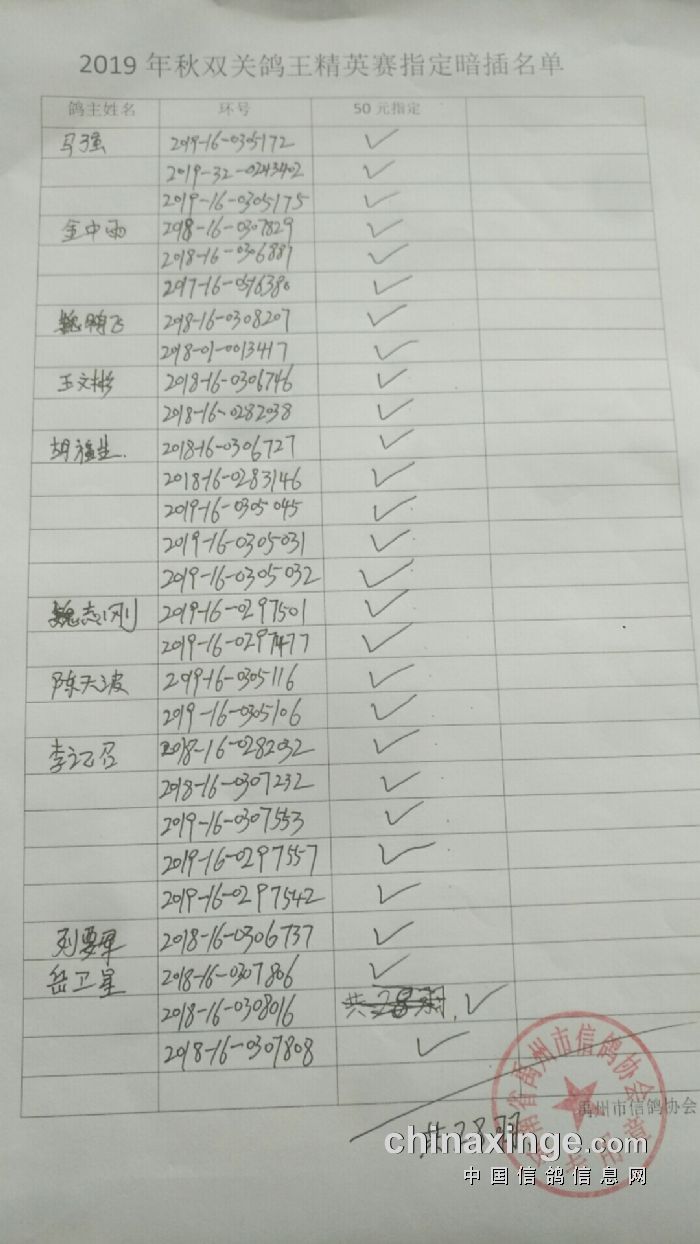 2019年秋双关鸽王精英赛指定暗插名单
鸽主姓名 环号 50元指定
马强 2019-16-0305172 ✓
2019-32-0243402 ✓
2019-16-0305175 ✓
金中雨 2018-16-0307829 ✓
2018-16-0306881 ✓
2017-16- ✓
魏鹏飞 2018-16-0308207 ✓
2018-01-0013417 ✓
王文彬 2018-16-0306746 ✓
2018-16-0282038 ✓
胡福生. 2018-16-0306727 ✓
2018-16-0283146 ✓
2019-16-0305045 ✓
2019-16-0305031 ✓
2019-16-0305032 ✓
魏志刚 2019-16-0297501 ✓
2019-16-0297477 ✓
陈天波 2019-16-0305116 ✓
2019-16-0305106 ✓
李 召 2018-16-0282032 ✓
2018-16-0307232 ✓
2019-16-0307553 ✓
2019-16-0297557 ✓
2019-16-0297542 ✓
2018-16-0306737 ✓
岳卫星 2018-16-0307806 ✓
2018-16-0308016 共28羽. ✓
2018-16-0307808 ✓
省禹州市信鸽协会
禹州市信鸽协会
共28羽
chinaxinge.com
中国信鸽信息网